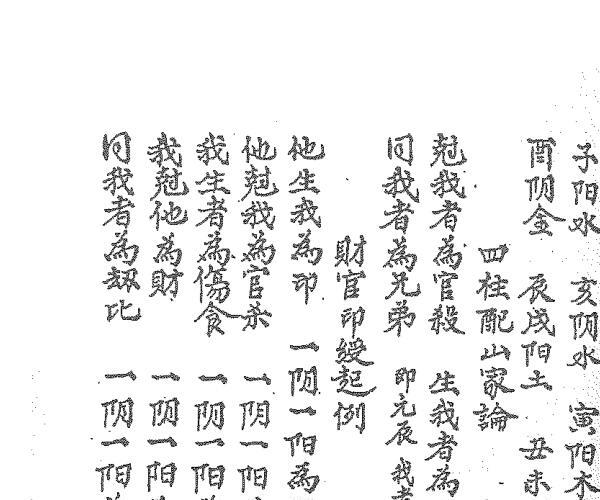 子阳水 亥阴水 寅阳木
酉阴金 辰戌阳土 丑未
四柱配山家論
尅我者為官殺 生我者為
同我者為兄弟 即元辰 我者
財官印綬起例
他生我為印 一阴一阳為
他尅我為官杀 一阴一阳
我生者為傷食 一阴一阳
我尅他為財 一阴一阳
同我者為劫比 一阴一阳